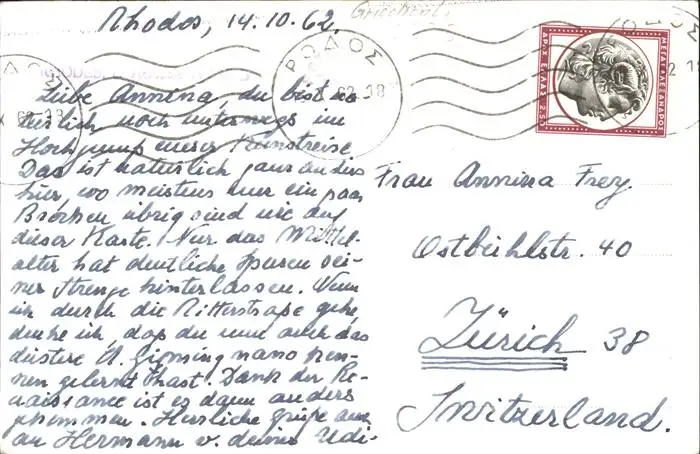 Rhodos, 14.10.62.
Griechenl.
ΡΟΔΟΣ
62-18
ΜΕΓΑΣ ΑΛΕΞΑΝΔΡΟΣ
Liebe Annina, du bist na-
türlich noch unterwegs im
Hochgenuss eurer Kunstreise
Das ist natürlich ganz anders
hier, wo meistens nur ein paar
Brocken übrig sind wie auf
dieser Karte. Nur das Mittel-
alter hat deutliche Spuren sei-
ner Strenge hinterlassen. Wenn
ich durch die Ritterstrasse gehe,
denke ich, dass du nun auch das
düstere S. Gimignano ken-
nen gelernt hast. Dank der Re-
naissance ist es dann anders
gekommen. Herzliche Grüsse auch
an Hermann v. deiner Udi-
Frau Annina Frey.
Ostbühlstr. 40
Zürich 38
Switzerland.